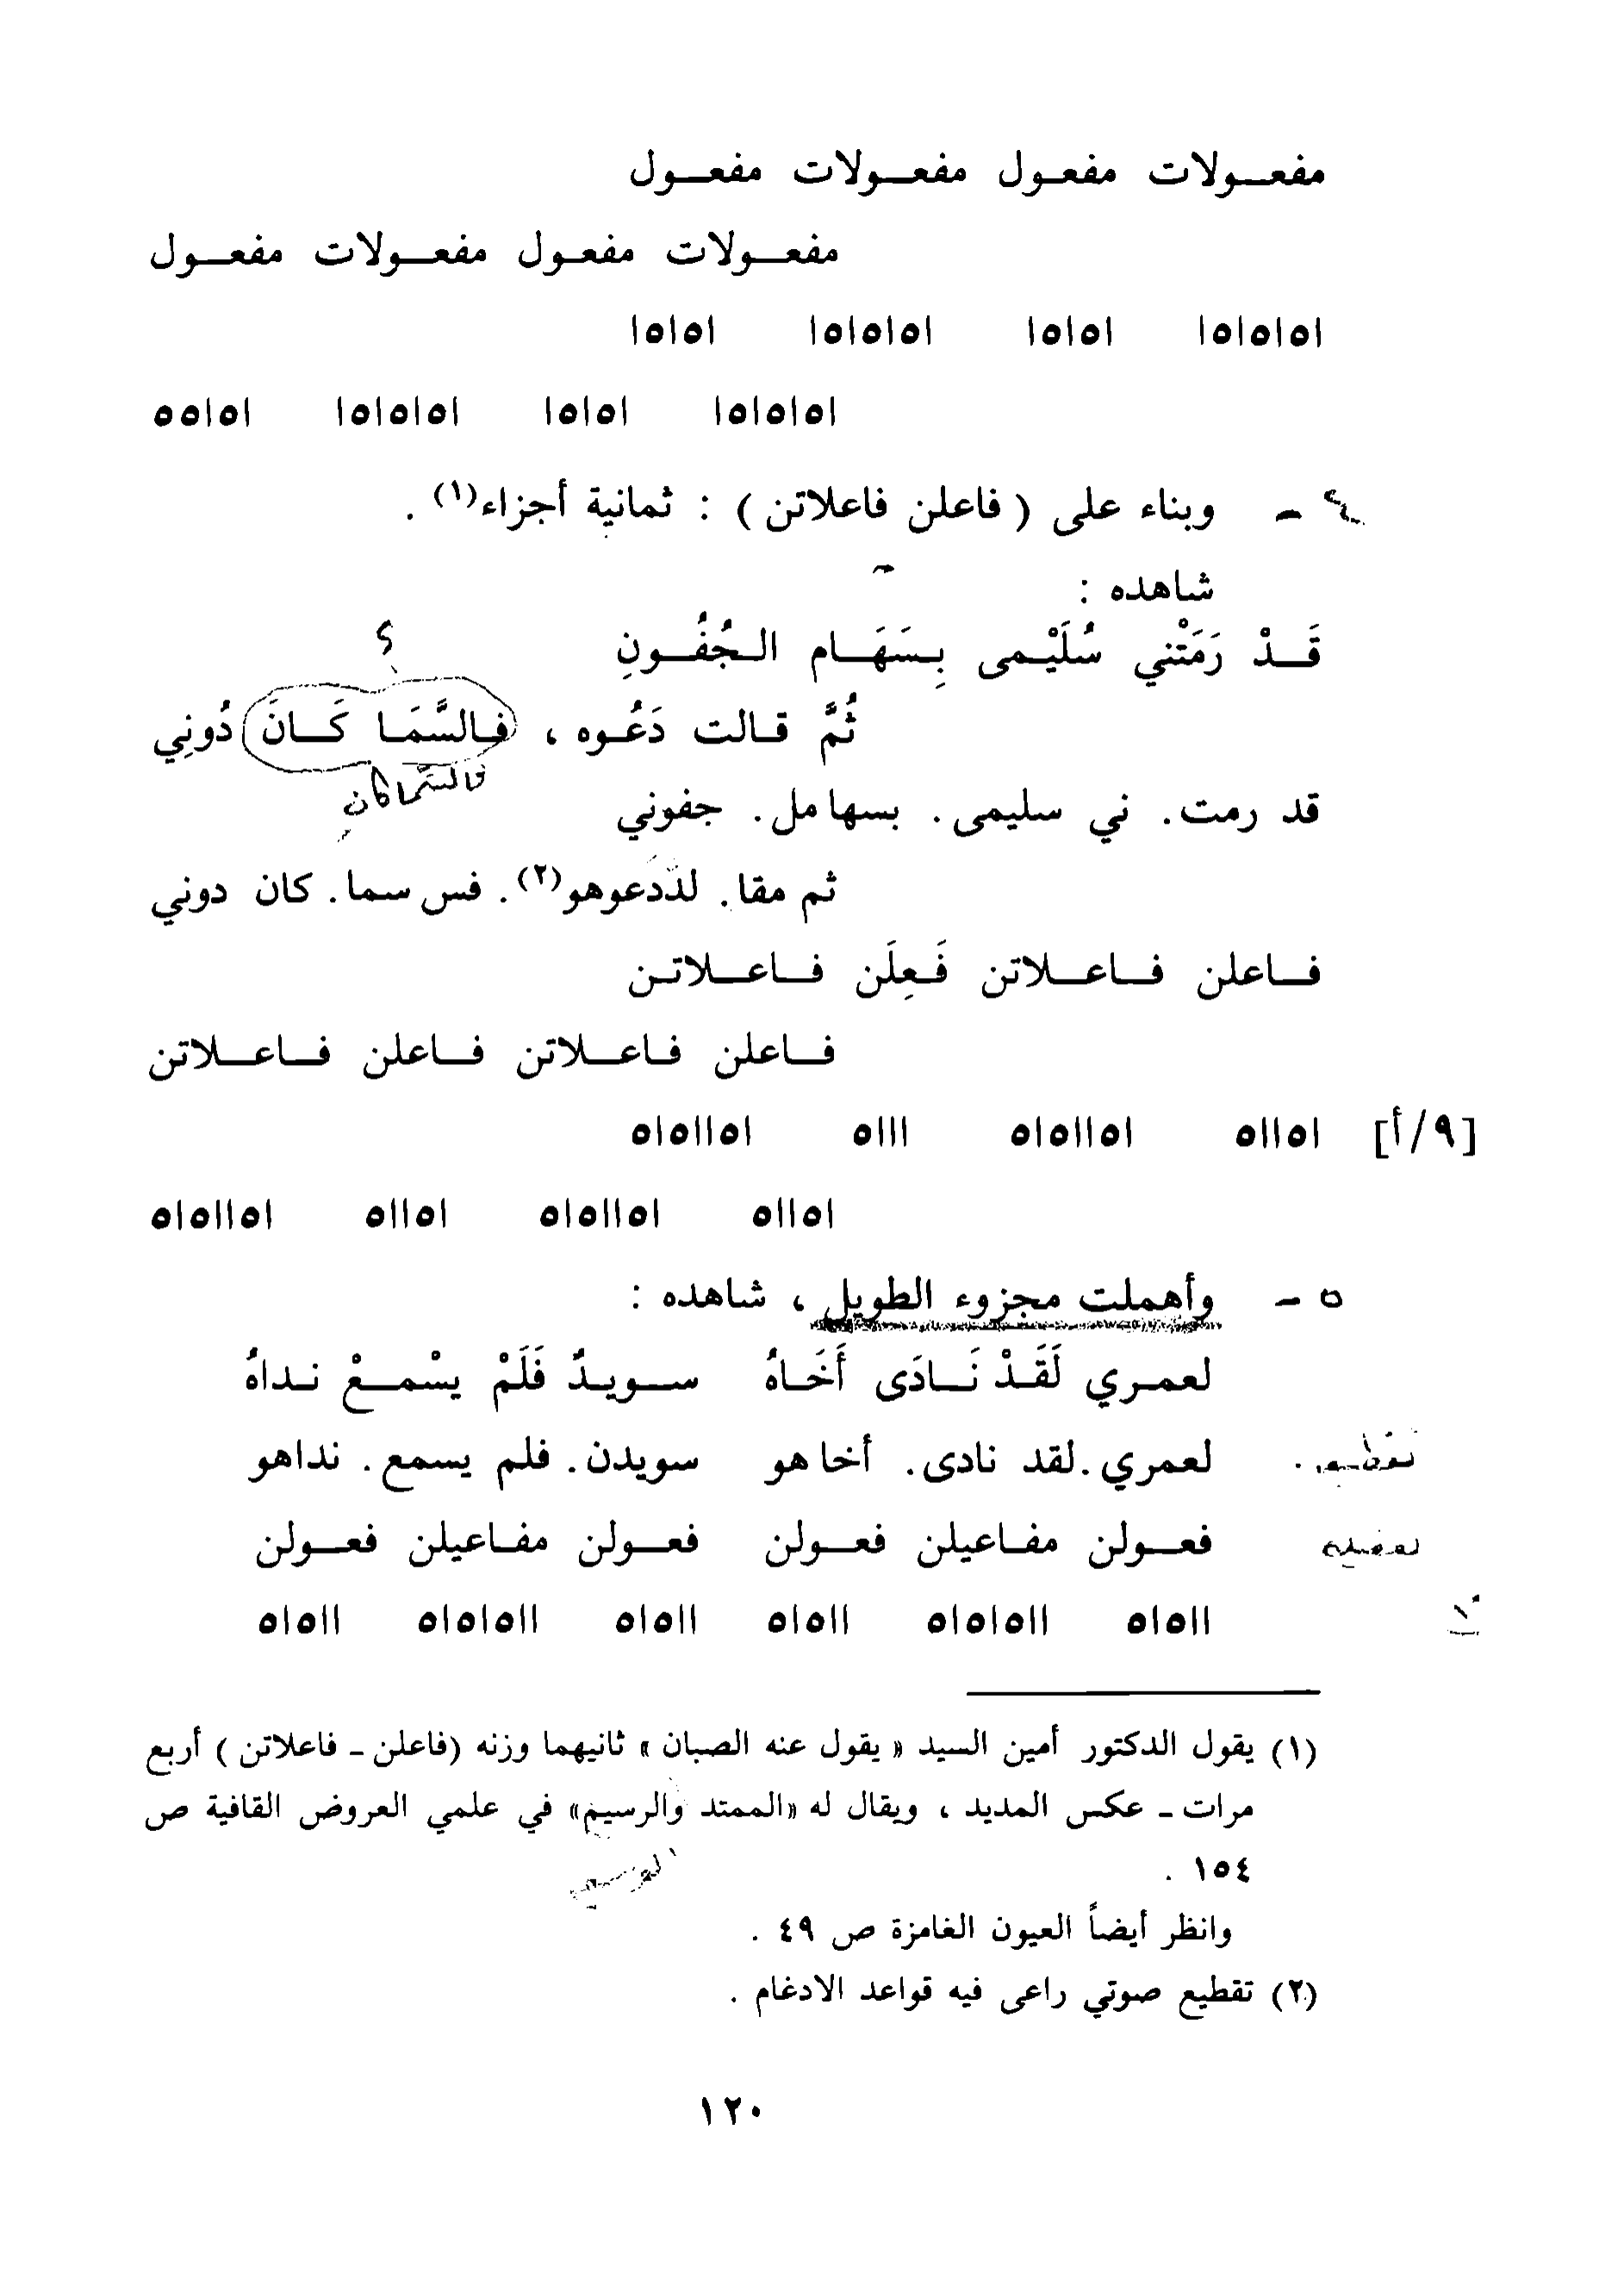 مفعـولات مفعـول مفعـولات مفعـول
مفعـولات مفعـول مفعـولات مفعـول
ا٥ا٥ا٥ا ا٥ا٥ا ا٥ا٥ا٥ا ا٥ا٥ا
ا٥ا٥ا٥ا ا٥ا٥ا ا٥ا٥ا٥ا ا٥ا٥٥
٤ - وبناء على ( فاعلن فاعلاتن ) : ثمانية أجزاء(١) .
شاهده :
قَـدْ رَمَتْني سُلَيْـمى بِـسَهَـام الـجُفُـونِ
؟
ثُمَّ قـالت دَعُـوه ، فـالسَّمَـا كَـانَ دُونِي
فالسَّماكان
قد رمت. ني سليمى. بسهامل. جفوني
ثم مقا. لدَدعوهو(٢). فس سما. كان دوني
فـاعلن فـاعـلاتن فَـعِلَن فـاعـلاتـن
فـاعلن فـاعـلاتن فـاعلن فـاعـلاتن
[٩/أ] ا٥اا٥ ا٥اا٥ا٥ ااا٥ ا٥اا٥ا٥
ا٥اا٥ ا٥اا٥ا٥ ا٥اا٥ ا٥اا٥ا٥
٥ - وأهملت مجزوء الطويل ، شاهده :
لعمـري لَقَـدْ نَـادَى أَخَـاهُ سـويـدٌ فَلَمْ يسْمـعْ نـداهُ
تقطيعه. لعمري.لقد نادى. أخاهو سويدن. فلم يسمع. نداهو
تفعيله فعـولن مفـاعيلن فعـولن فعـولن مفـاعيلن فعـولن
اا٥ا٥ اا٥ا٥ا٥ اا٥ا٥ اا٥ا٥ اا٥ا٥ا٥ اا٥ا٥
(١) يقول الدكتور أمين السيد « يقول عنه الصبان » ثانيهما وزنه (فاعلن - فاعلاتن ) أربع
مرات - عكس المديد ، ويقال له «الممتد والرسيم» في علمي العروض القافية ص
١٥٤ .
وانظر أيضاً العيون الغامزة ص ٤٩ .
(٢) تقطيع صوتي راعى فيه قواعد الادغام .
١٢٠